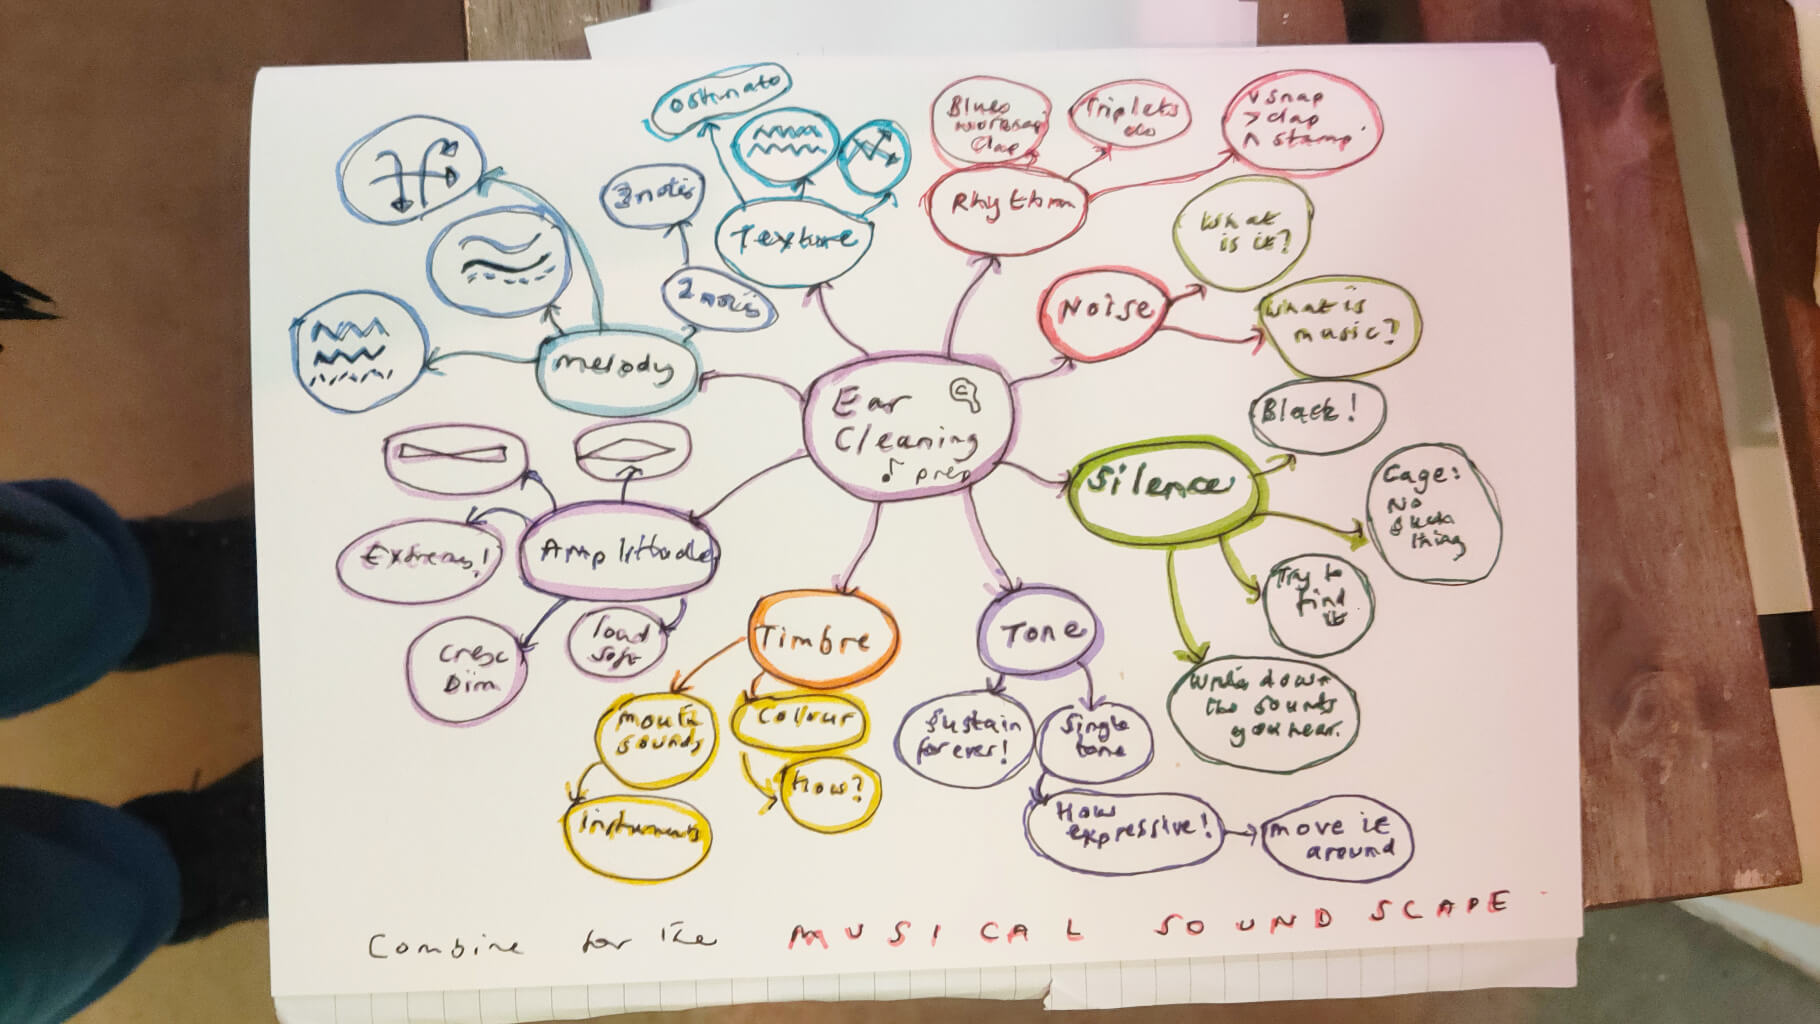 Ostinato
Blues
Clap
Triplets
do
v snap
> clap
^ stamp.
3 notes
Texture
Rhythm
What
is it?
2 notes
Noise
What is
music?
Melody
Ear
Cleaning
prep
Black!
Silence
Cage:
No
such
thing
Extremes!
Amplitude
Try to
find
it
loud
soft
Cresc
Dim
Timbre
Tone
Write down
the sounds
you hear.
mouth
sounds
Colour
Sustain
forever!
Single
tone
How?
instruments
How
expressive!
move it
around
Combine for the MUSICAL SOUND SCAPE